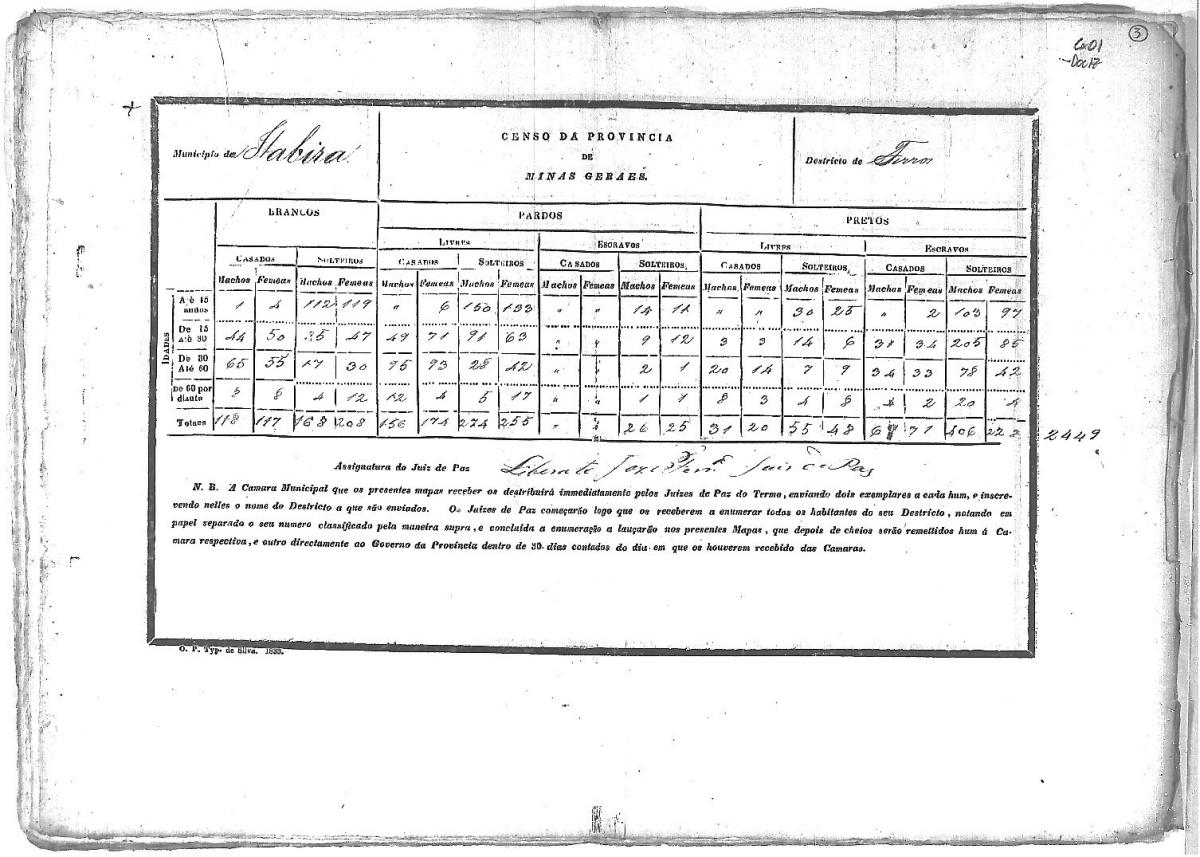 3
Cx 01
Doc 17
Municipio de Itabira
CENSO DA PROVINCIA
DE
MINAS GERAES.
Destricto de Ferros
BRANCOS PARDOS PRETOS
LIVRES ESCRAVOS LIVRES ESCRAVOS
CASADOS SOLTEIROS CASADOS SOLTEIROS CASADOS SOLTEIROS, CASADOS SOLTEIROS, CASADOS SOLTEIROS
Machos Femeas Machos Femeas Machos Femeas Machos Femeas Machos Femeas Machos Femeas Machos Femeas Machos Femeas Machos Femeas Machos Femeas
IDADES
Até 15 annos 1 4 112 119 " 6 150 133 " " 14 11 " " 30 25 " 2 103 97
De 15 Até 30 44 50 35 47 49 71 91 63 " " 9 12 3 3 14 6 31 34 205 85
De 30 Até 60 65 55 17 30 95 93 28 42 " " 2 1 20 14 7 9 34 33 78 42
De 60 por diante 8 8 4 12 12 4 5 17 " " 1 1 8 3 4 8 4 2 20 4
Totaes 118 117 168 208 156 174 274 255 " " 26 25 31 20 55 48 71 406 2449
Assignatura do Juiz de Paz Liberato Joze Ferr.ª Juis de Paz
N. B. A Camara Municipal que os presentes mapas receber os destribuirá immediatamente pelos Juizes de Paz do Termo, enviando dois exemplares a cada hum, e inscre-
vendo nelles o nome do Destricto a que são enviados. Os Juizes de Paz começarão logo que os receberem a enumerar todos os habitantes do seu Destricto, notando em
papel separado o seu numero classificado pela maneira supra, e concluida a enumeração a lançarão nos presentes Mapas, que depois de cheios serão remettidos hum á Ca-
mara respectiva, e outro directamente ao Governo da Provincia dentro de 30 dias contados do dia em que os houverem recebido das Camaras.
O. P. Typ. de Silva. 1833.